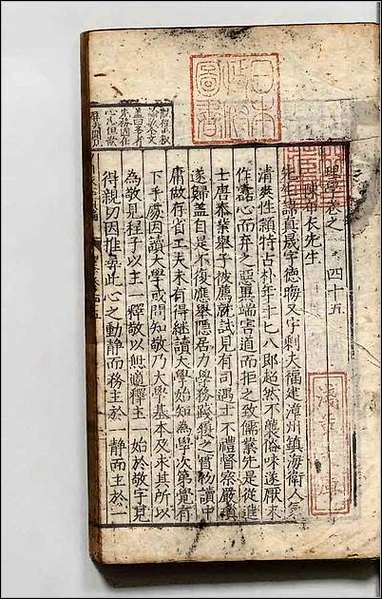 理學卷之 四十五
陳布衣先生
先生諱真晟字德晦又字剩夫福建漳州鎮海衛人
清爽性穎特古朴年十七八即超然不甕俗味遂厭末
作甚心而弃之惡異端害道而拒之致儒業先是從進
士唐泰舉業舉子被薦就試見有司遇士不禮督察嚴慎
遂歸盖自是不復應舉隱居力學務踐履之實初讀中
庸做存省工夫未有得繼讀大學始知為學次第覺有
下手處因讀大學或問知敬乃大學基本及求其所以
為敬見程子以主一釋敬以無適釋主一始於敬字見
得親切因推尋此心之動靜而務主於一靜而主於一